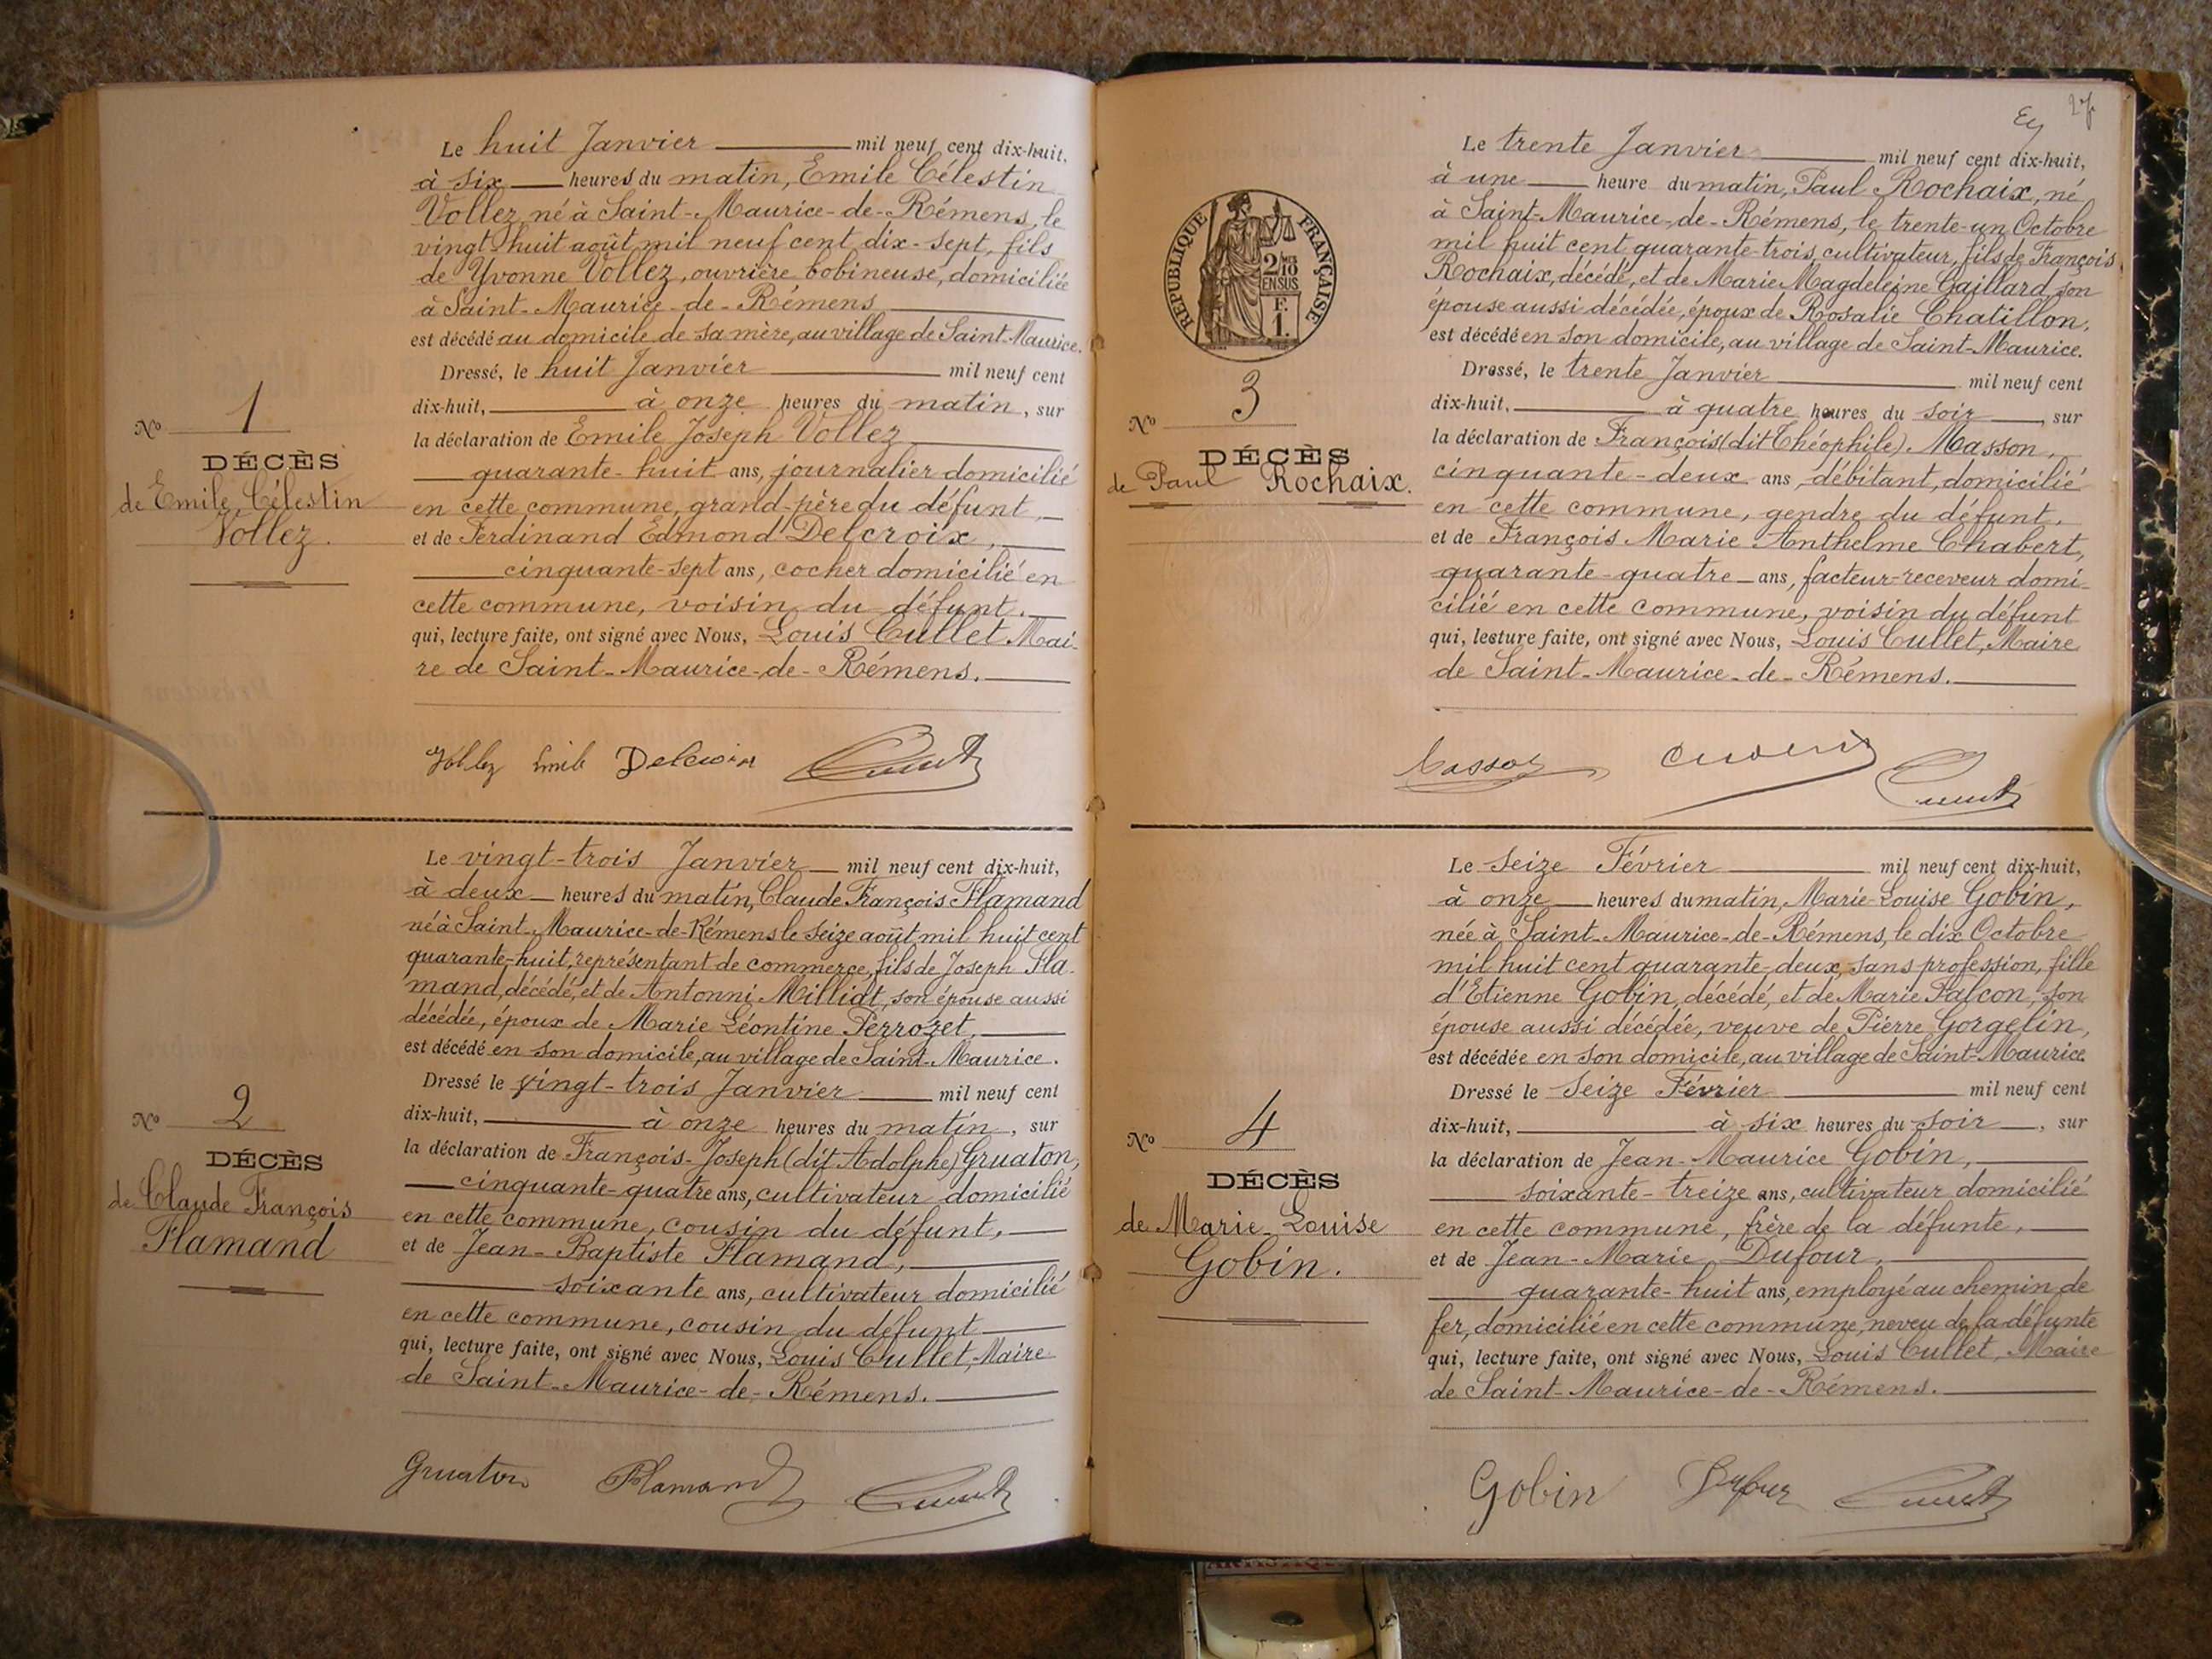 Le huit Janvier mil neuf cent dix-huit,
à six heures du matin, Emile Célestin
Vollez, né à Saint-Maurice-de-Rémens, le
vingt-huit août mil neuf cent dix-sept, fils
de Yvonne Vollez, ouvrière bobineuse, domiciliée
à Saint-Maurice-de-Rémens
est décédé au domicile de sa mère, au village de Saint-Maurice.
Dressé, le huit Janvier mil neuf cent
dix-huit, à onze heures du matin, sur
la déclaration de Emile Joseph Vollez
quarante-huit ans, journalier domicilié
en cette commune, grand-père du défunt,
et de Ferdinand Edmond Delcroix,
cinquante-sept ans, cocher domicilié en
cette commune, voisin du défunt.
qui, lecture faite, ont signé avec Nous, Louis Cullet Mai-
re de Saint-Maurice-de-Rémens.
Nº 1
DÉCÈS
de Emile Célestin
Vollez.
Vollez Emile Delcroix
Le vingt-trois Janvier mil neuf cent dix-huit,
à deux heures du matin, Claude François Flamand
né à Saint-Maurice-de-Rémens le seize août mil huit cent
quarante-huit, représentant de commerce, fils de Joseph Fla-
mand, décédé, et de Antonni Milliat, son épouse aussi
décédée, époux de Marie Léontine Perrozet,
est décédé en son domicile, au village de Saint-Maurice.
Dressé le vingt-trois Janvier mil neuf cent
dix-huit, à onze heures du matin, sur
la déclaration de François-Joseph (dit Adolphe) Gruaton,
cinquante-quatre ans, cultivateur domicilié
en cette commune, cousin du défunt,
et de Jean-Baptiste Flamand,
soixante ans, cultivateur domicilié
en cette commune, cousin du défunt
qui, lecture faite, ont signé avec Nous, Louis Cullet, Maire
de Saint-Maurice-de-Rémens.
Nº 2
DÉCÈS
de Claude François
Flamand
Gruaton Flamand
27
RÉPUBLIQUE FRANÇAISE
2/10
EN SUS
F.
1.
Le trente Janvier mil neuf cent dix-huit,
à une heure du matin, Paul Rochaix, né
à Saint-Maurice-de-Rémens, le trente-un Octobre
mil huit cent quarante-trois, cultivateur, fils de François
Rochaix, décédé, et de Marie Magdeleine Gaillard, son
épouse aussi décédée, époux de Rosalie Chatillon,
est décédé en son domicile, au village de Saint-Maurice.
Dressé, le trente Janvier mil neuf cent
dix-huit, à quatre heures du soir, sur
la déclaration de François (dit Théophile) Masson,
cinquante-deux ans, débitant, domicilié
en cette commune, gendre du défunt,
et de François Marie Anthelme Chabert,
quarante-quatre ans, facteur-receveur domi-
cilié en cette commune, voisin du défunt
qui, lecture faite, ont signé avec Nous, Louis Cullet, Maire
de Saint-Maurice-de-Rémens.
Nº 3
DÉCÈS
de Paul Rochaix.
Masson
Le seize Février mil neuf cent dix-huit,
à onze heures du matin, Marie-Louise Gobin,
née à Saint-Maurice-de-Rémens, le dix Octobre
mil huit cent quarante-deux, sans profession, fille
d'Etienne Gobin, décédé, et de Marie Falcon, son
épouse aussi décédée, veuve de Pierre Gorgelin,
est décédée en son domicile, au village de Saint-Maurice
Dressé le seize Février mil neuf cent
dix-huit, à six heures du soir, sur
la déclaration de Jean-Maurice Gobin,
soixante-treize ans, cultivateur domicilié
en cette commune, frère de la défunte,
et de Jean-Marie Dufour,
quarante-huit ans, employé au chemin de
fer, domicilié en cette commune, neveu de la défunte
qui, lecture faite, ont signé avec Nous, Louis Cullet, Maire
de Saint-Maurice-de-Rémens.
Nº 4
DÉCÈS
de Marie-Louise
Gobin.
Gobin Dufour